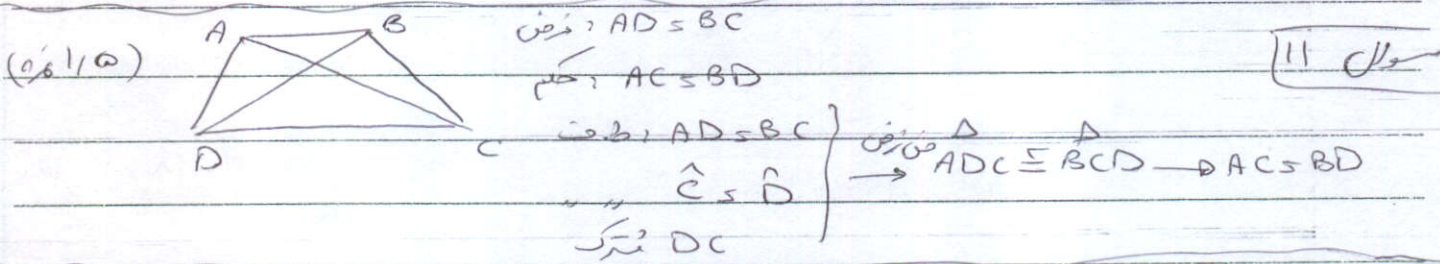 سوال ۱۱
(۱٫۵ نمره) A B فرض: AD = BC
حکم: AC = BD
D C
فرض: AD = BC
" " Ĉ = D̂
مشترک DC
} ض ز ض → ADC ≅ BCD → AC = BD